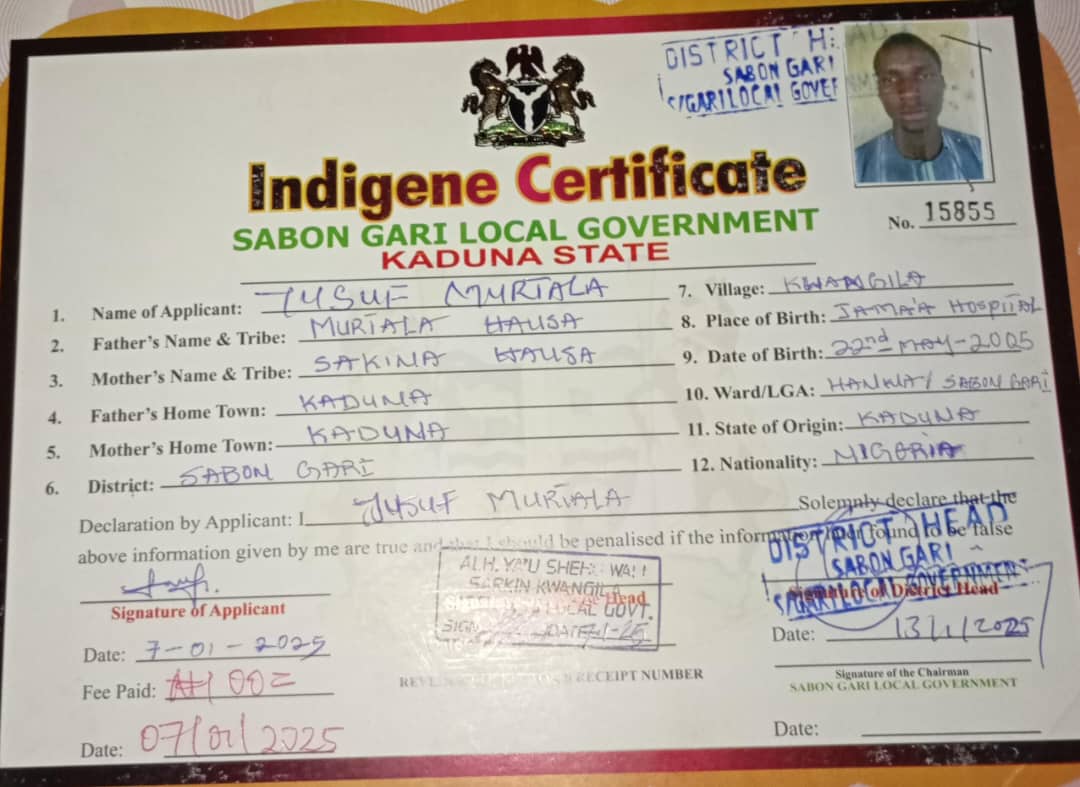 DISTRICT HEAD
SABON GARI
S/GARI LOCAL GOVER
Indigene Certificate
SABON GARI LOCAL GOVERNMENT
KADUNA STATE
No. 15855
1. Name of Applicant: YUSUF MURTALA
2. Father's Name & Tribe: MURTALA HAUSA
3. Mother's Name & Tribe: SAKINA HAUSA
4. Father's Home Town: KADUNA
5. Mother's Home Town: KADUNA
6. District: SABON GARI
7. Village: KWANGILA
8. Place of Birth: JAMA'A HOSPITAL
9. Date of Birth: 22nd MAY-2005
10. Ward/LGA: SABON GARI
11. State of Origin: KADUNA
12. Nationality: NIGERIA
Declaration by Applicant: I YUSUF MURTALA Solemnly declare that the
above information given by me are true and that I should be penalised if the information found to be false
Signature of Applicant
Date: 7-01-2025
Fee Paid:
Date: 07/01/2025
SARKIN KWANGILA
Head
LOCAL GOVT.
SIGN DATE 7-1-25
RECEIPT NUMBER
DISTRICT HEAD
SABON GARI
S/GARI LOCAL GOVERNMENT
Signature of District Head
Date: 13/1/2025
Signature of the Chairman
SABON GARI LOCAL GOVERNMENT
Date: